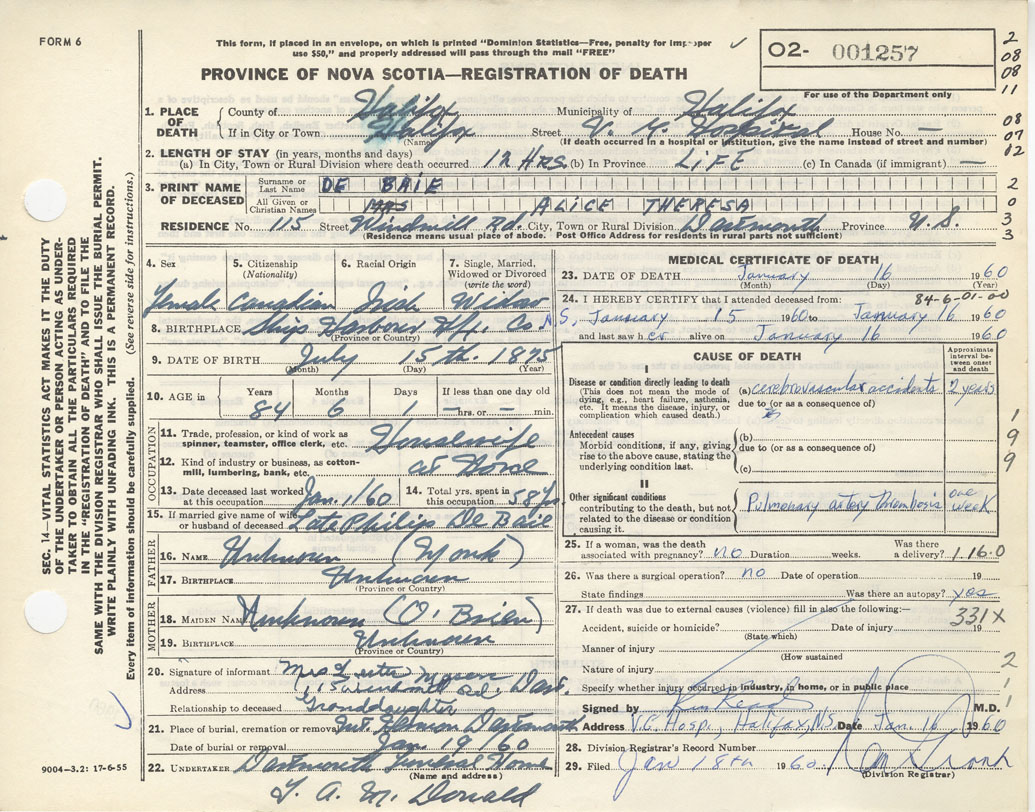 FORM 6
This form, if placed in an envelope, on which is printed "Dominion Statistics—Free, penalty for improper
use $50," and properly addressed will pass through the mail "FREE"
PROVINCE OF NOVA SCOTIA—REGISTRATION OF DEATH
O2- 001257
For use of the Department only
2
08
08
11
08
07
12
2
0
3
3
1. PLACE OF DEATH County of Halifax Municipality of Halifax
If in City or Town Halifax Street V. G. Hospital House No. —
(Name) (If death occurred in a hospital or institution, give the name instead of street and number)
2. LENGTH OF STAY (in years, months and days)
(a) In City, Town or Rural Division where death occurred 12 HRS (b) In Province LIFE (c) In Canada (if immigrant) —
3. PRINT NAME OF DECEASED Surname or Last Name DE BAIE
All Given or Christian Names MRS ALICE THERESA
RESIDENCE No. 115 Street Windmill Rd. City, Town or Rural Division Dartmouth Province N.S.
(Residence means usual place of abode. Post Office Address for residents in rural parts not sufficient)
SEC. 14—VITAL STATISTICS ACT MAKES IT THE DUTY
OF THE UNDERTAKER OR PERSON ACTING AS UNDER-
TAKER TO OBTAIN ALL THE PARTICULARS REQUIRED
IN THE "REGISTRATION OF DEATH" AND TO FILE THE
SAME WITH THE DIVISION REGISTRAR WHO SHALL ISSUE THE BURIAL PERMIT.
WRITE PLAINLY WITH UNFADING INK. THIS IS A PERMANENT RECORD.
Every item of information should be carefully supplied. (See reverse side for instructions.)
4. Sex 5. Citizenship (Nationality) 6. Racial Origin 7. Single, Married, Widowed or Divorced (write the word)
Female Canadian Irish Widow
8. BIRTHPLACE Ship Harbour Hfx. Co N.S.
(Province or Country)
9. DATE OF BIRTH July 15th. 1875
(Month) (Day) (Year)
10. AGE in Years Months Days If less than one day old
84 6 1 — hrs. or — min.
OCCUPATION
11. Trade, profession, or kind of work as spinner, teamster, office clerk, etc. Housewife
12. Kind of industry or business, as cotton-mill, lumbering, bank, etc. at Home
13. Date deceased last worked at this occupation Jan. 1/60 14. Total yrs. spent in this occupation 58 yrs
15. If married give name of wife or husband of deceased Late Philip De Baie
FATHER
16. NAME Unknown (Monk)
17. BIRTHPLACE Unknown
(Province or Country)
MOTHER
18. MAIDEN NAME Unknown (O'Brien)
19. BIRTHPLACE Unknown
(Province or Country)
20. Signature of informant Mrs
Address 115 Windmill Rd. Dart.
Relationship to deceased Granddaughter
21. Place of burial, cremation or removal Mt. Hermon Dartmouth
Date of burial or removal Jan 19/60
22. UNDERTAKER Dartmouth Funeral Home
(Name and address)
T. A. McDonald
9004-3.2: 17-6-55
MEDICAL CERTIFICATE OF DEATH
23. DATE OF DEATH January 16 1960
(Month) (Day) (Year)
84-6-01-00
24. I HEREBY CERTIFY that I attended deceased from:
January 15 1960 to January 16 1960
and last saw her alive on January 16 1960
CAUSE OF DEATH
Approximate interval between onset and death
I
Disease or condition directly leading to death
(This does not mean the mode of dying, e.g., heart failure, asthenia, etc. It means the disease, injury, or complication which caused death.)
(a) cerebrovascular accidents 2 years
due to (or as a consequence of)
Antecedent causes
Morbid conditions, if any, giving rise to the above cause, stating the underlying condition last.
(b)
due to (or as a consequence of)
(c)
1
9
9
II
Other significant conditions contributing to the death, but not related to the disease or condition causing it.
Pulmonary artery thrombosis one week
25. If a woman, was the death associated with pregnancy? no Duration weeks. Was there a delivery? 1.16.0
26. Was there a surgical operation? no Date of operation 19
State findings Was there an autopsy? yes
27. If death was due to external causes (violence) fill in also the following:—
331X
Accident, suicide or homicide? Date of injury 19
(State which)
Manner of injury
(How sustained
2
Nature of injury
Specify whether injury occurred in industry, in home, or in public place
1
Signed by M.D.
1
Address V.G. Hosp., Halifax, N.S. Date Jan. 16 1960
28. Division Registrar's Record Number
29. Filed Jan 18th 1960
(Division Registrar)